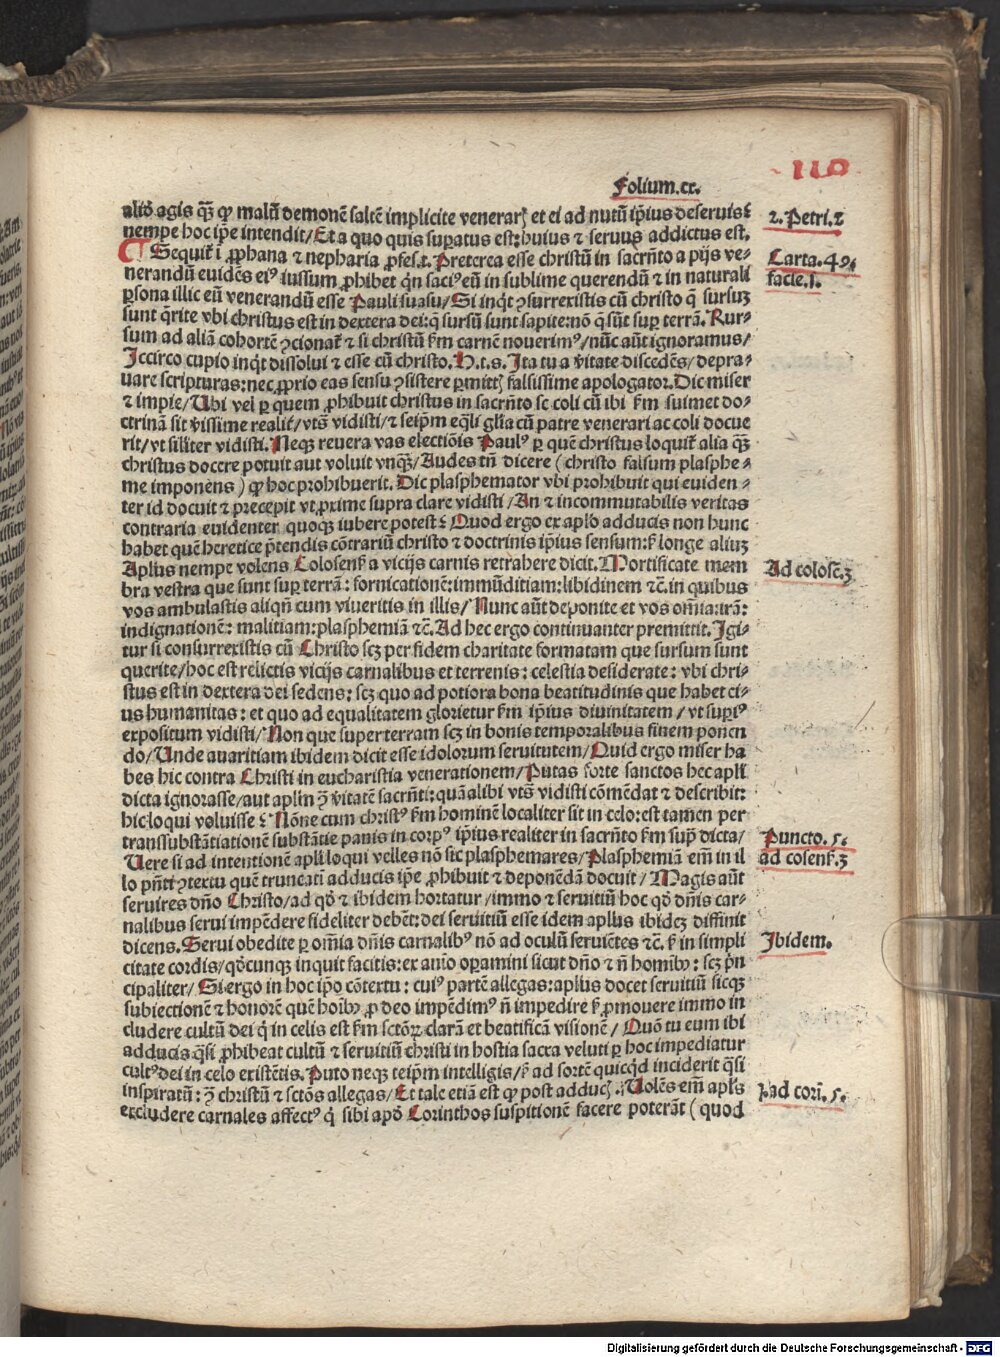 110
Folium.cx.
aliō agis q̃ꝫ ꝙ malū demonē saltē implicite venerarꝭ et ei ad nutū ip̄ius deseruis:
nempe hoc ip̄e intendit/Et a quo quis suꝑatus est: huius ⁊ seruus addictus est.
Sequit̃ ī ꝓphana ⁊ nepharia ꝓfes.t. Preterea esse christū in sacrn̄to a pijs ve⸗
nerandū euidēs eiꝰ iussum ꝓhibet qn̄ saciꝰ eū in sublime querendū ⁊ in naturali
ꝑsona illic eū venerandū esse Pauli suasu/Si inqt̄ ꝯsurrexistis cū christo q̄ sursuꝫ
sunt qrite vbi christus est in dextera dei: q̄ sursū sunt sapite: nō q̄ sūt suꝑ terrā. Rur⸗
sum ad aliā cohortē ꝯcionat̃ ⁊ si christū ẜm carnē nouerimꝰ/nūc aūt ignoramus/
Iccirco cupio inqt̄ dissolui ⁊ esse cū christo. H.t.s. Ita tu a v̄itate discedēs/depra⸗
uare scripturas: nec ꝓprio eas sensu ꝯsistere ꝑmittꝭ falsissime apologator. Dic miser
⁊ impie/Ubi vel ꝑ quem ꝓhibuit christus in sacrn̄to se coli cū ibi ẜm suimet do⸗
ctrinā sit v̄issime realit̃/vts̄ vidisti/⁊ seip̄m eq̄li gl̄ia cū patre venerari ac coli docue
rit/vt sil̄iter vidisti. Neqꝫ reuera vas electiōis Paulꝰ ꝑ quē christus loquit̃ alia q̄ꝫ
christus docere potuit aut voluit vnq̄ꝫ/Audes tn̄ dicere (christo falsum plasphe⸗
me imponens) ꝙ hoc prohibuerit. Dic plasphemator vbi prohibuit qui euiden⸗
ter id docuit ⁊ precepit vt ꝓxime supra clare vidisti/An ⁊ incommutabilis veritas
contraria euidenter quoqꝫ iubere potest: Quod ergo ex apl̄o adducis non hunc
habet quē heretice p̄tendis cōtrariū christo ⁊ doctrinis ip̄ius sensum: s̄ longe aliuꝫ
Apl̄us nempe volens Colosens̄ a vicijs carnis retrahere dicit. Mortificate mem
bra vestra que sunt suꝑ terrā: fornicationē: immūditiam: libidinem ⁊c̄. in quibus
vos ambulastis aliqn̄ cum viueritis in illis/Nunc aūt deponite et vos om̄ia: irā:
indignationē: malitiam: plasphemiā ⁊c̄. Ad hec ergo continuanter premittit. Igi⸗
tur si consurrexistis cū Christo scꝫ per fidem charitate formatam que sursum sunt
querite/hoc est relictis vicijs carnalibus et terrenis: celestia desiderate: vbi chri⸗
stus est in dextera dei sedens: scꝫ quo ad potiora bona beatitudinis que habet ei⸗
us humanitas: et quo ad equalitatem glorietur ẜm ip̄ius diuinitatem/vt suꝑiꝰ
expositum vidisti/Non que super terram scꝫ in bonis temporalibus finem ponen
do/Unde auaritiam ibidem dicit esse idolorum seruitutem/Quid ergo miser ha
bes hic contra Christi in eucharistia venerationem/Putas forte sanctos hec apl̄i
dicta ignorasse/aut apl̄m ꝯ̄ v̄itatē sacrn̄ti: quā alibi vts̄ vidisti cōmēdat ⁊ describit:
hic loqui voluisse: Nōne cum christꝰ ẜm hominē localiter sit in celo: est tamen per
transsubstātiationē substātie panis in corpꝰ ip̄ius realiter in sacrn̄to ẜm sup̄ dicta/
Uere si ad intentionē apl̄i loqui velles nō sic plasphemares/Plasphemiā em̄ in il
lo pn̄ti ꝯtextu quē truncati adducis ip̄e ꝓhibuit ⁊ deponēdā docuit/Magis aūt
seruires dn̄o Christo/ad qd̄ ⁊ ibidem hortatur/immo ⁊ seruitiū hoc qd̄ dn̄is car⸗
nalibus serui impēdere fideliter debēt: dei seruitiū esse idem apl̄us ibideꝫ diffinit
dicens. Serui obedite ꝑ om̄ia dn̄is carnalibꝰ nō ad oculū seruiētes ⁊c̄. s̄ in simpli
citate cordis/qd̄cunqꝫ inquit facitis: ex aīo oꝑamini sicut dn̄o ⁊ n̄ hoībꝰ: scꝫ p̄n
cipaliter/Si ergo in hoc ip̄o cōtextu: cuiꝰ partē allegas: apl̄us docet seruitiū sicqꝫ
subiectionē ⁊ honorē quē hoībꝰ ꝓ deo impēdimꝰ n̄ impedire s̄ ꝓmouere immo in
cludere cultū dei q̄ in celis est ẜm sctōꝝ clarā et beatificā visionē/Quō tu eum ibi
adducis q̄si ꝓhibeat cultū ⁊ seruitiū christi in hostia sacra veluti ꝑ hoc impediatur
cultꝰ dei in celo existētis. Puto neqꝫ teip̄m intelligis/s̄ ad sortē quicq̄d inciderit q̄si
inspiratū: ꝯ̄ christū ⁊ sctōs allegas/Et tale etiā est qd̄ post adducꝭ. Uolēs em̄ apl̄s
excludere carnales affectꝰ q̄ sibi apd̄ Corinthos suspitionē facere poterāt (quod
2. Petri.2
Carta.49.
facie.1.
Ad colosē.3.
Puncto.5.
ad cosens̄.3
Ibidem.
2.ad corī.5.
Digitalisierung gefördert durch die Deutsche Forschungsgemeinschaft - DFG